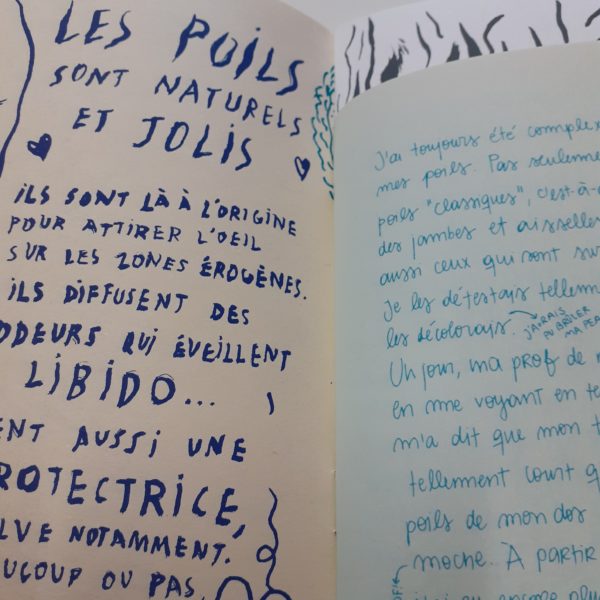 LES POILS
SONT NATURELS
ET JOLIS
ILS SONT LÀ À L'ORIGINE
POUR ATTIRER L'OEIL
SUR LES ZONES ÉROGÈNES.
ILS DIFFUSENT DES
ODEURS QUI ÉVEILLENT
LIBIDO...
ENT AUSSI UNE
ROTECTRICE,
LVE NOTAMMENT.
AUCOUP OU PAS
J'ai toujours été complex
mes poils. Pas seuleme
poils "classiques", c'est-à-
des jambes et aisselle
aussi ceux qui sont su
Je les détestais tellem
les décolorais.
J'AURAIS
PU BRÛLER
MA PEA
Un jour, ma prof de
en me voyant en te
m'a dit que mon t
tellement court q
poils de mon dos
moche. À partir